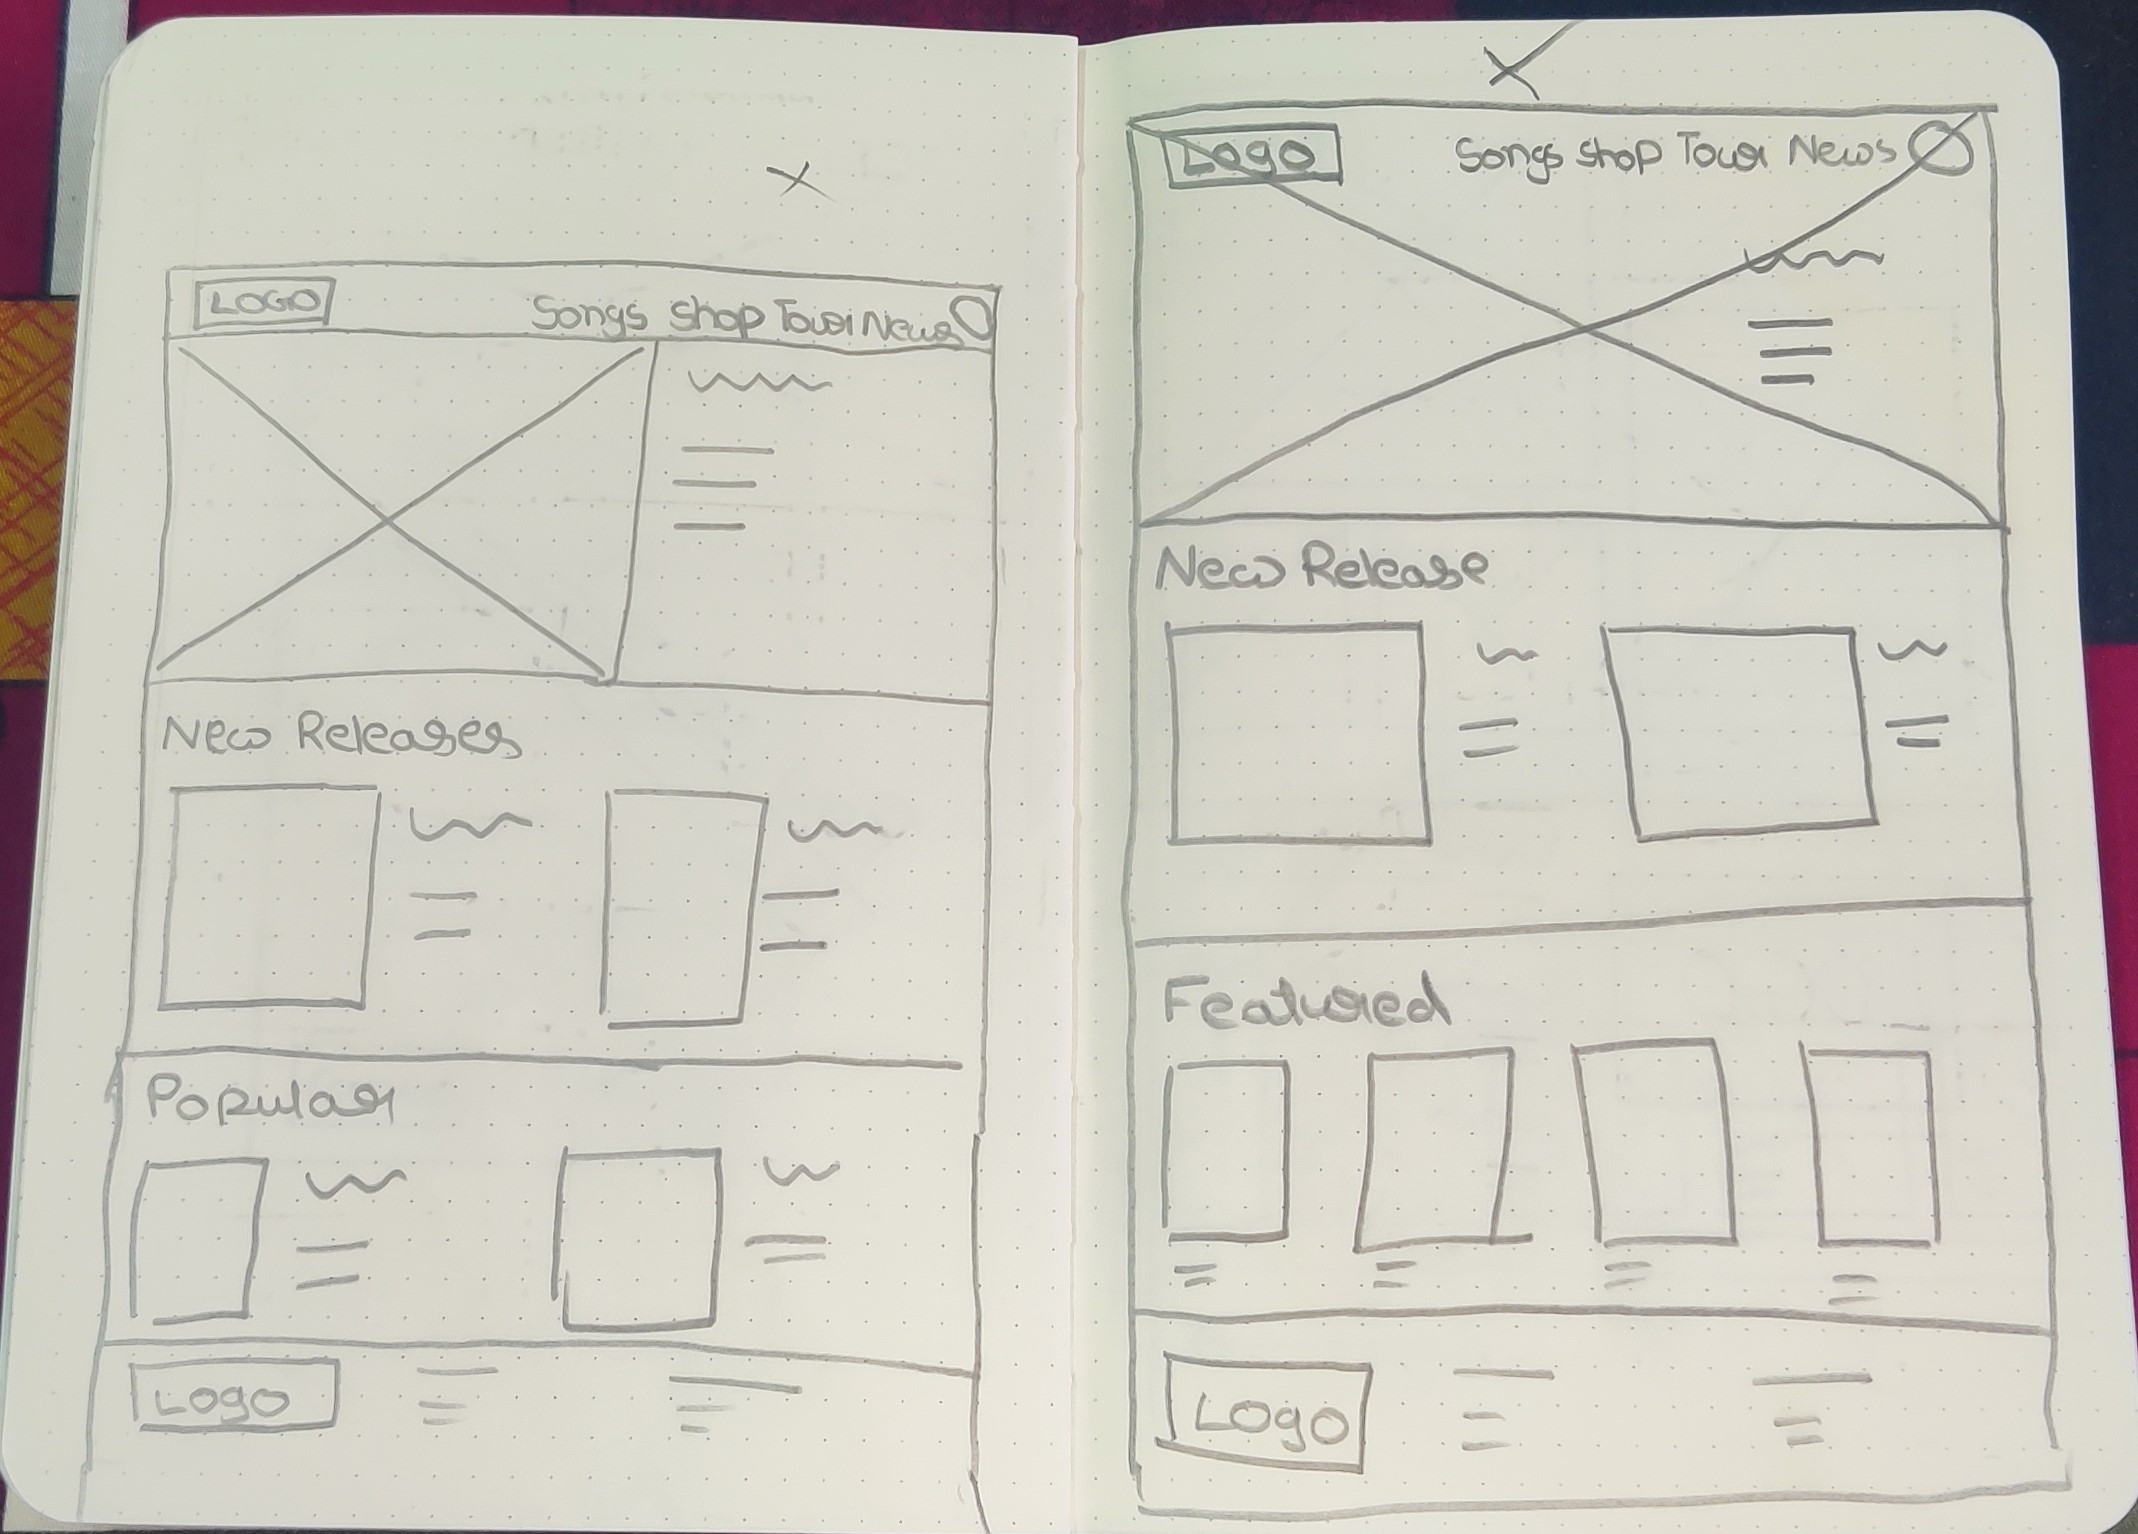 LOGO Songs Shop Tour News
New Releases
Popular
Logo
Logo Songs Shop Tour News
New Release
Featured
Logo